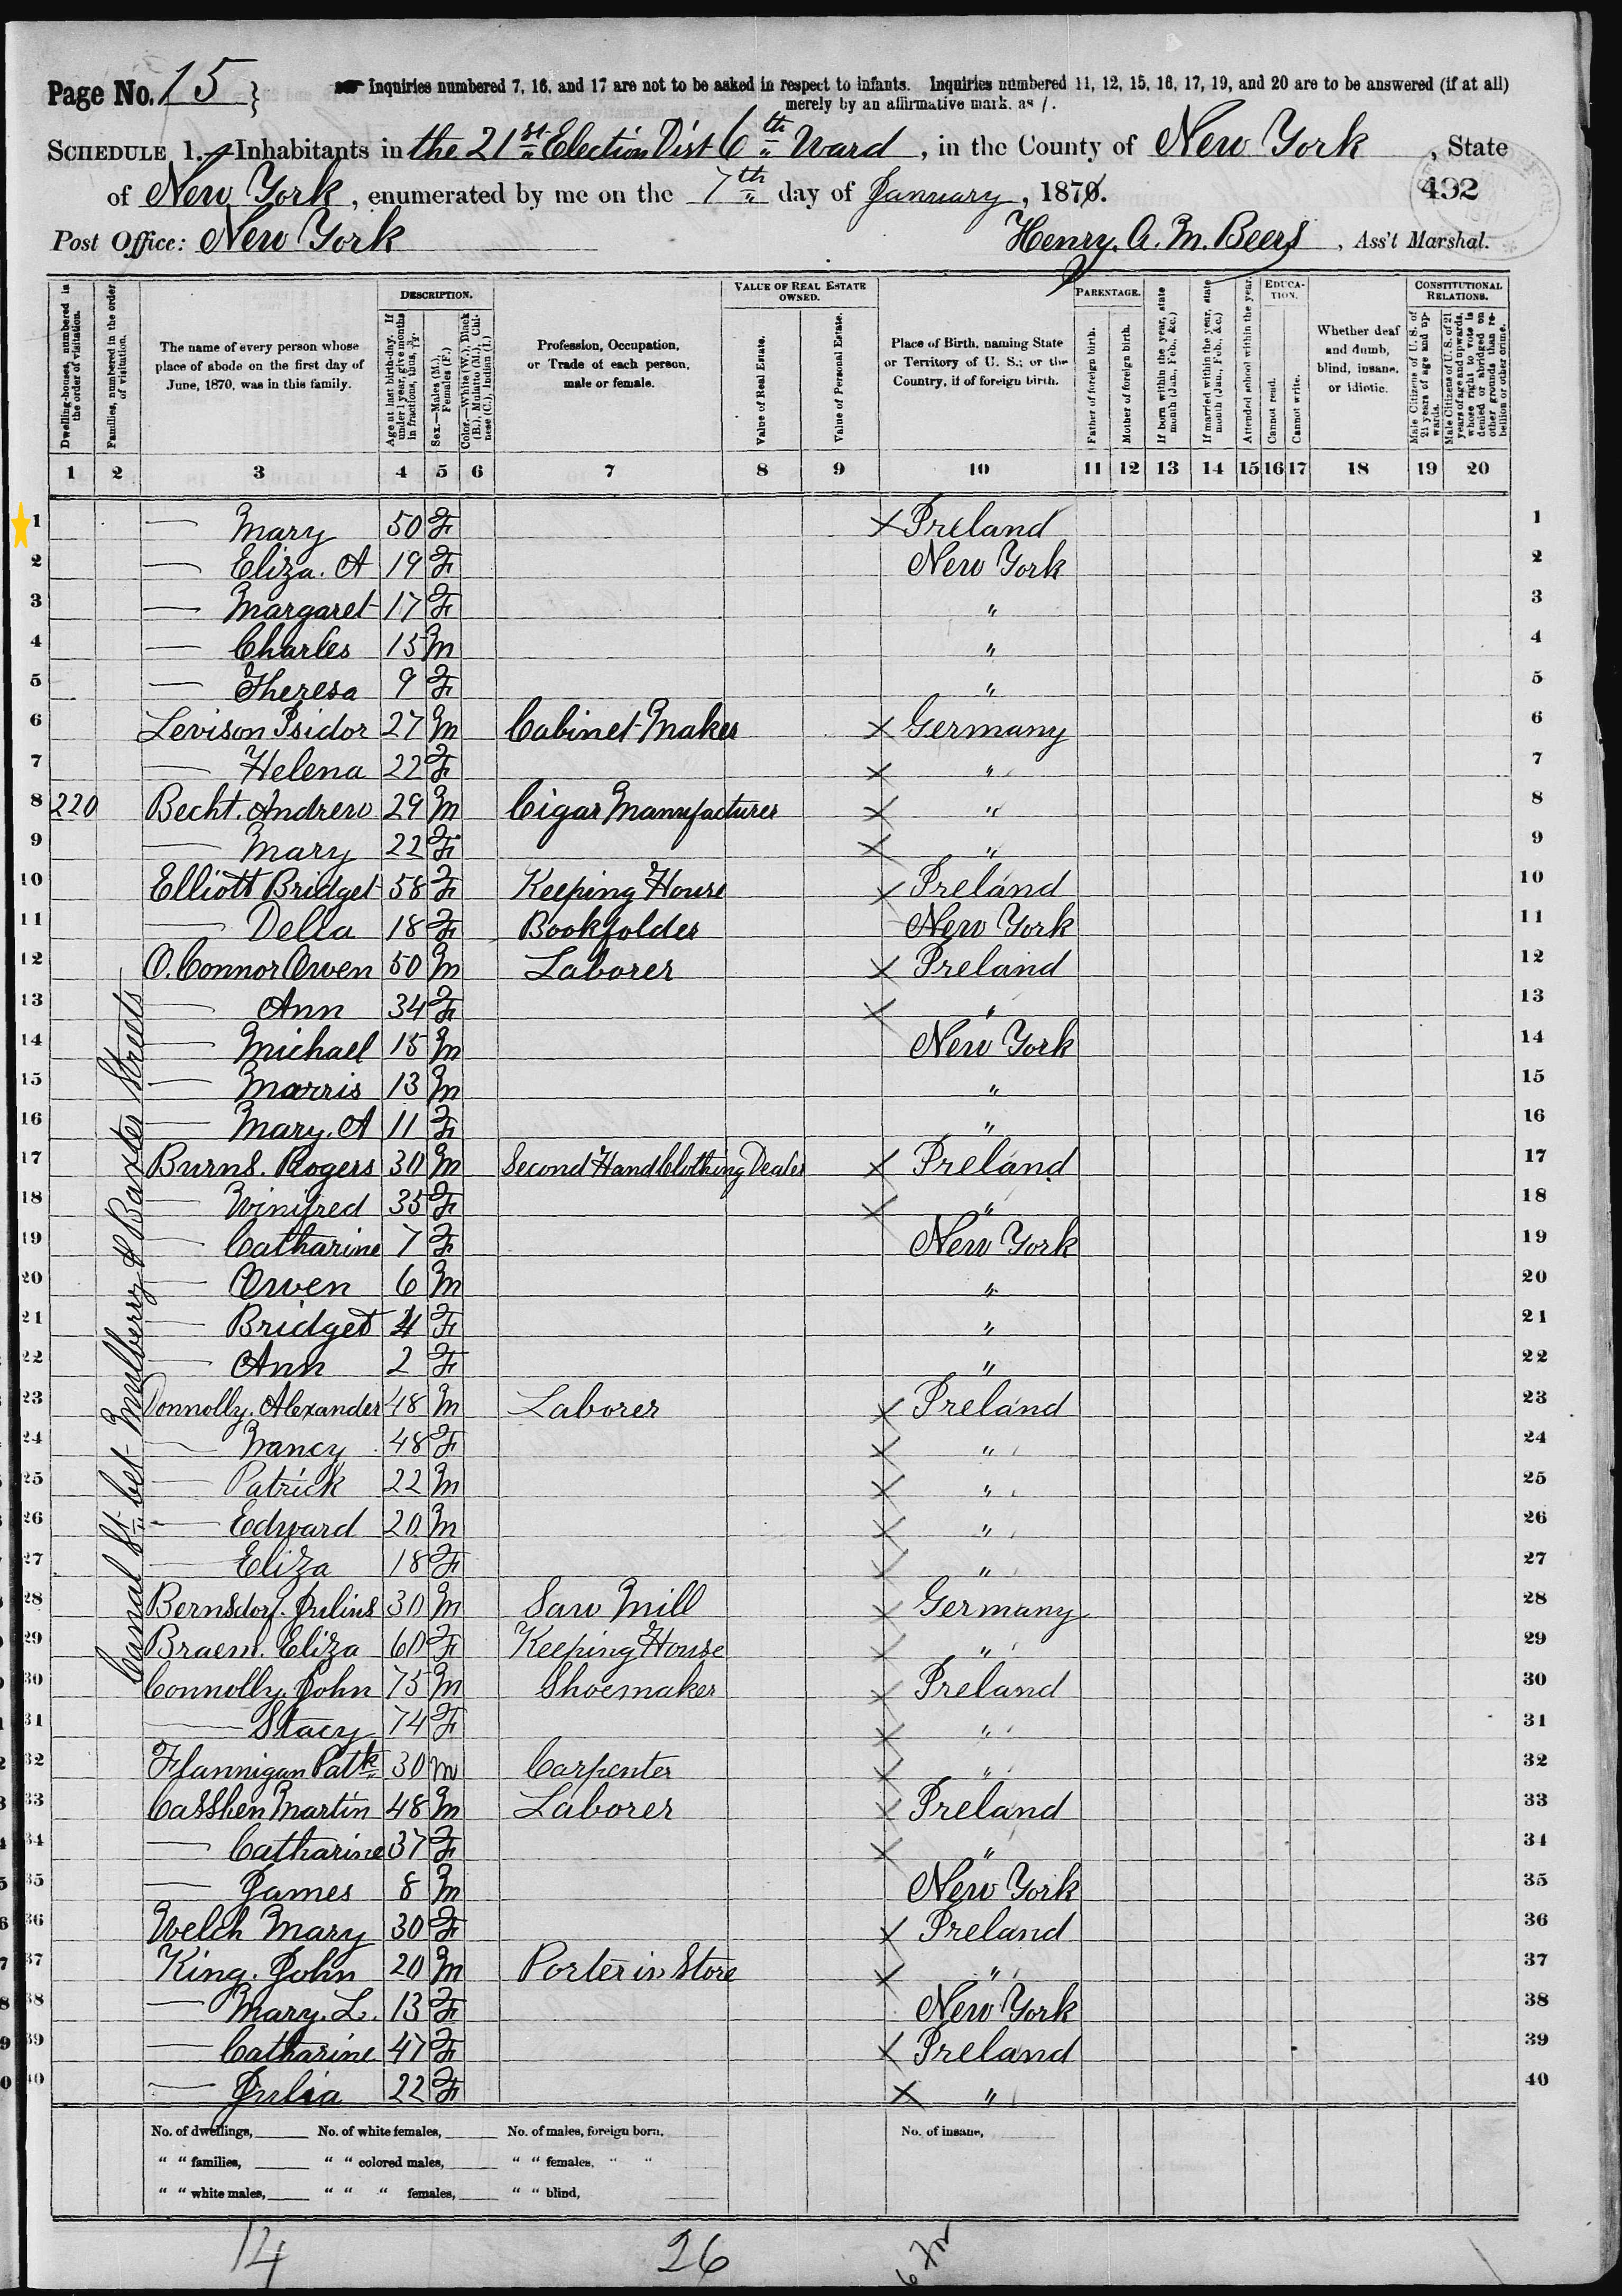 Page No. 15 }
Inquiries numbered 7, 16, and 17 are not to be asked in respect to infants. Inquiries numbered 11, 12, 15, 16, 17, 19, and 20 are to be answered (if at all)
merely by an affirmative mark, as /.
SCHEDULE 1.—Inhabitants in the 21st Election Dist 6th Ward, in the County of New York, State
of New York, enumerated by me on the 7th day of January, 1870.
492
Post Office: New York Henry. A. M. Beers, Ass't Marshal.
Dwelling-houses, numbered in the order of visitation.
Families, numbered in the order of visitation.
The name of every person whose place of abode on the first day of June, 1870, was in this family.
DESCRIPTION.
Age at last birth-day. If under 1 year, give months in fractions, thus, 3/12.
Sex.—Males (M.), Females (F.)
Color.—White (W.), Black (B.), Mulatto (M.), Chinese (C.), Indian (I.)
Profession, Occupation, or Trade of each person, male or female.
VALUE OF REAL ESTATE OWNED.
Value of Real Estate.
Value of Personal Estate.
Place of Birth, naming State or Territory of U. S.; or the Country, if of foreign birth.
PARENTAGE.
Father of foreign birth.
Mother of foreign birth.
If born within the year, state month (Jan., Feb., &c.)
If married within the year, state month (Jan., Feb., &c.)
EDUCATION.
Attended school within the year.
Cannot read.
Cannot write.
Whether deaf and dumb, blind, insane, or idiotic.
CONSTITUTIONAL RELATIONS.
Male Citizens of U. S. of 21 years of age and upwards.
Male Citizens of U. S. of 21 years of age and upwards, whose right to vote is denied or abridged on other grounds than rebellion or other crime.
1 2 3 4 5 6 7 8 9 10 11 12 13 14 15 16 17 18 19 20
1 — Mary 50 F X Ireland 1
2 — Eliza. A 19 F New York 2
3 — Margaret 17 F " 3
4 — Charles 15 M " 4
5 — Theresa 9 F " 5
6 Levison Isidor 27 M Cabinet Maker X Germany 6
7 — Helena 22 F X " 7
8 220 Becht. Andrew 29 M Cigar Manufacturer X " 8
9 — Mary 22 F X " 9
10 Elliott Bridget 58 F Keeping House X Ireland 10
11 — Delia 18 F Bookfolder New York 11
12 O.Connor Owen 50 M Laborer X Ireland 12
13 — Ann 34 F X " 13
14 — Michael 15 M New York 14
15 — Morris 13 M " 15
16 — Mary. A 11 F " 16
17 Burns. Rogers 30 M Second Hand Clothing Dealer X Ireland 17
18 — Winifred 35 F X " 18
19 — Catharine 7 F New York 19
20 — Owen 6 M " 20
21 — Bridget 4 F " 21
22 — Ann 2 F " 22
23 Donnolly. Alexander 48 M Laborer X Ireland 23
24 — Nancy 48 F X " 24
25 — Patrick 22 M X " 25
26 — Edward 20 M X " 26
27 — Eliza 18 F X " 27
28 Bernsdorf. Julius 30 M Saw Mill X Germany 28
29 Braem. Eliza 60 F Keeping House X " 29
30 Connolly. John 75 M Shoemaker X Ireland 30
31 — Stacy 74 F X " 31
32 Flannigan Patk 30 M Carpenter X " 32
33 Casshen Martin 48 M Laborer X Ireland 33
34 — Catharine 37 F X " 34
35 — James 8 M New York 35
36 Welch Mary 30 F X Ireland 36
37 King. John 20 M Porter in Store X " 37
38 — Mary. L. 13 F New York 38
39 — Catharine 47 F X Ireland 39
40 — Julia 22 F X " 40
Canal St. bet Mulberry & Baxter Streets
No. of dwellings, No. of white females, No. of males, foreign born, No. of insane,
" " families, " " colored males, " " females, " "
" " white males, " " " females, " " blind,
14 26